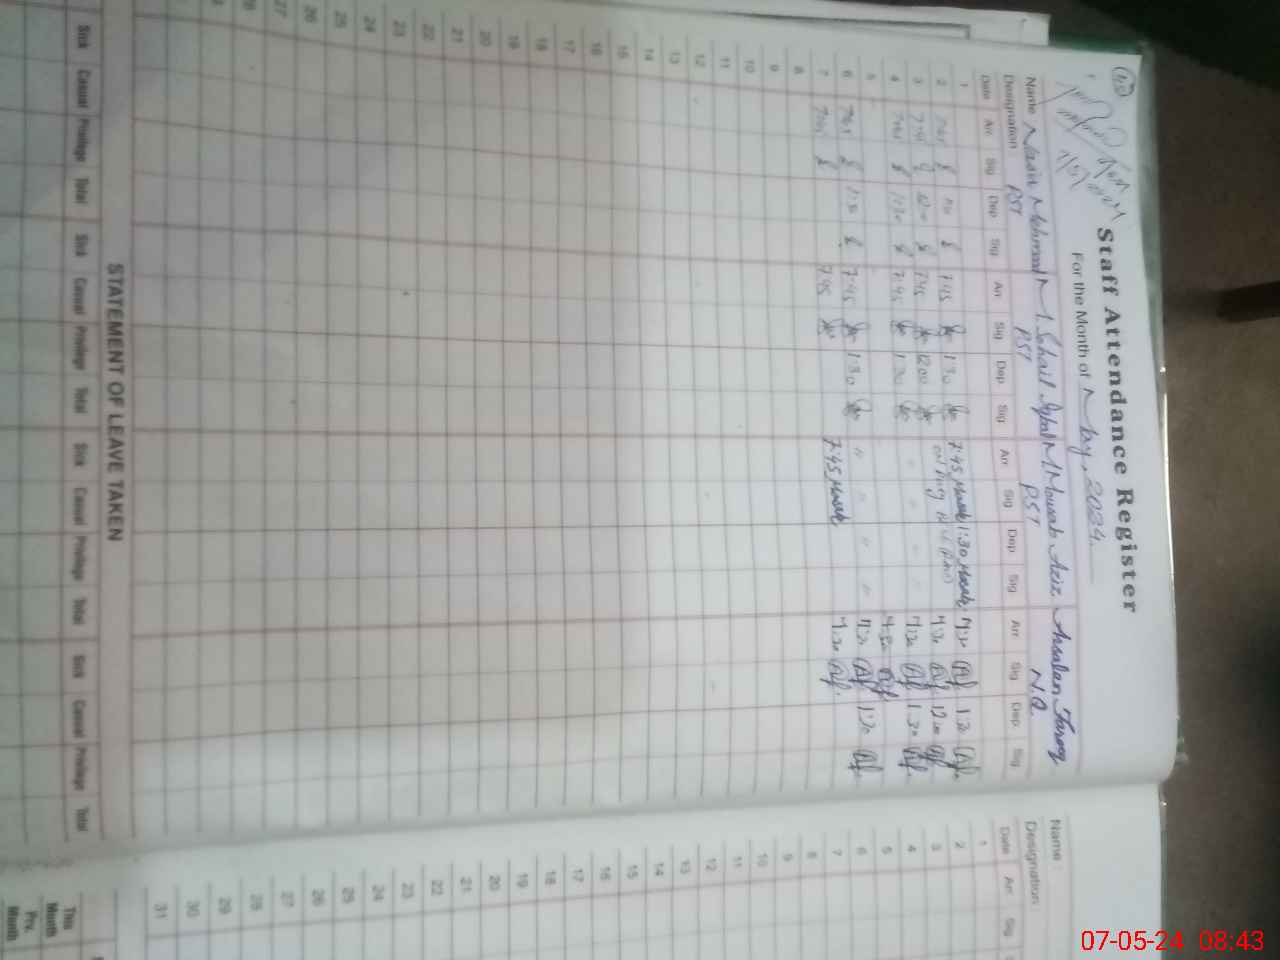 40
Staff Attendance Register
For the Month of May, 2024.
Name Nasir Mehmood M. Sohail Iqbal M Mousab Aziz Arsalan Farooq
Designation PST PST PST N.Q.
Date Arr Sig Dep Sig Arr Sig Dep Sig Arr Sig Dep Sig Arr Sig Dep Sig
1
2 7:45 1:30 7:45 1:30 7:45 1:30 7:30 1:30
3 7:45 1200 7:45 1200 7:30 12:00
4 7:45 1:30 7:45 1:30 " " " " 7:30 1:30
5 7:30
6 7:45 1:30 7:45 1:30 " " " " 7:30 1:30
7 7:45 7:45 7:45 7:30
8
9
10
11
12
13
14
15
16
17
18
19
20
21
22
23
24
25
26
27
28
STATEMENT OF LEAVE TAKEN
Sick Casual Privilege Total Sick Casual Privilege Total Sick Casual Privilege Total Sick Casual Privilege Total
Name :
Designation:
Date Arr Sig
1
2
3
4
5
6
7
8
9
10
11
12
13
14
15
16
17
18
19
20
21
22
23
24
25
26
27
28
29
30
31
This Month
Prv. Month
07-05-24 08:43